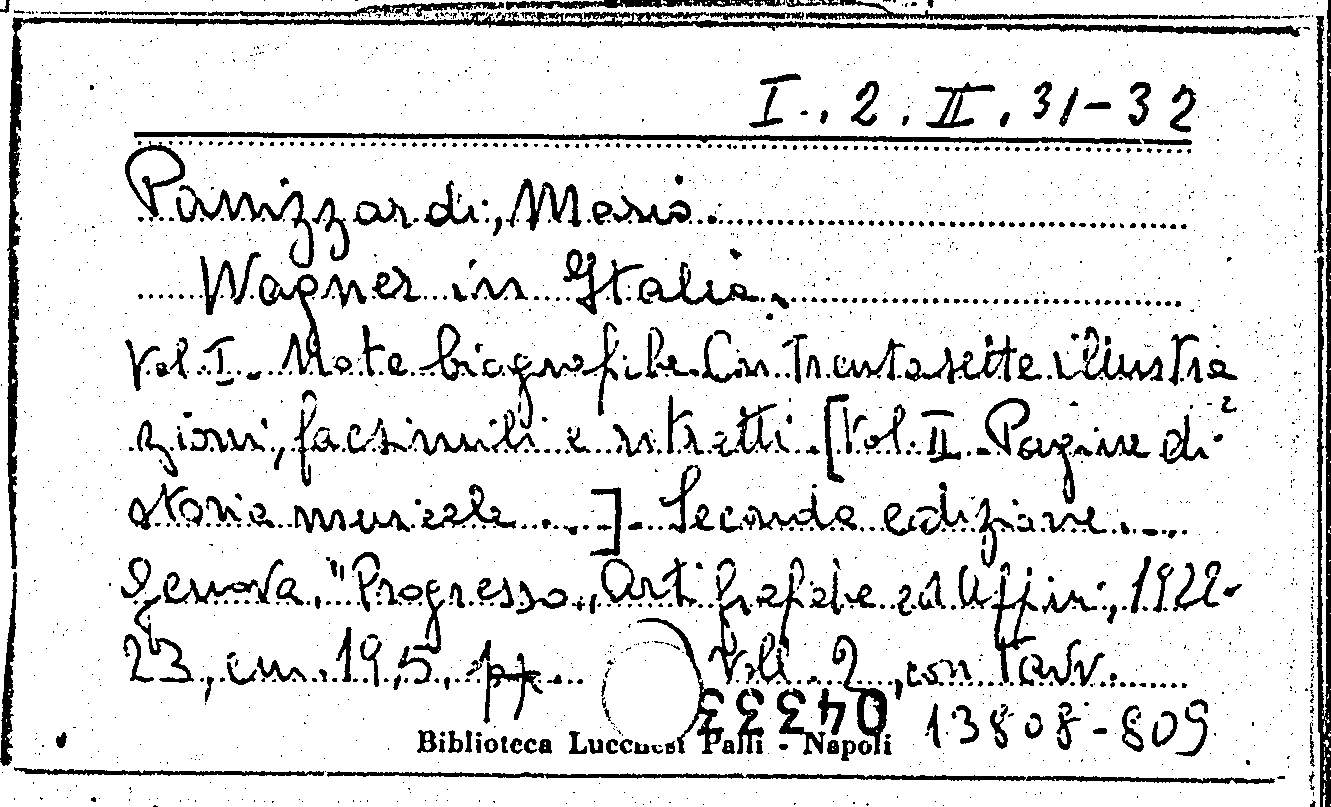 I., 2. II. 31-32
Panizzardi, Mario.
Wagner in Italia.
Vol. I. Note biografiche. Con trentasette illustra
zioni, facsimili e ritratti. [Vol. II. Pagine di
storia musicale...]. Seconda edizione...
Genova, "Progresso„ Arti Grafiche ed Affini, 1922-
23, cm. 19,5, pp... Voll. 2, con Tavv.
043333
13808-809
Biblioteca Lucchesi Palli - Napoli